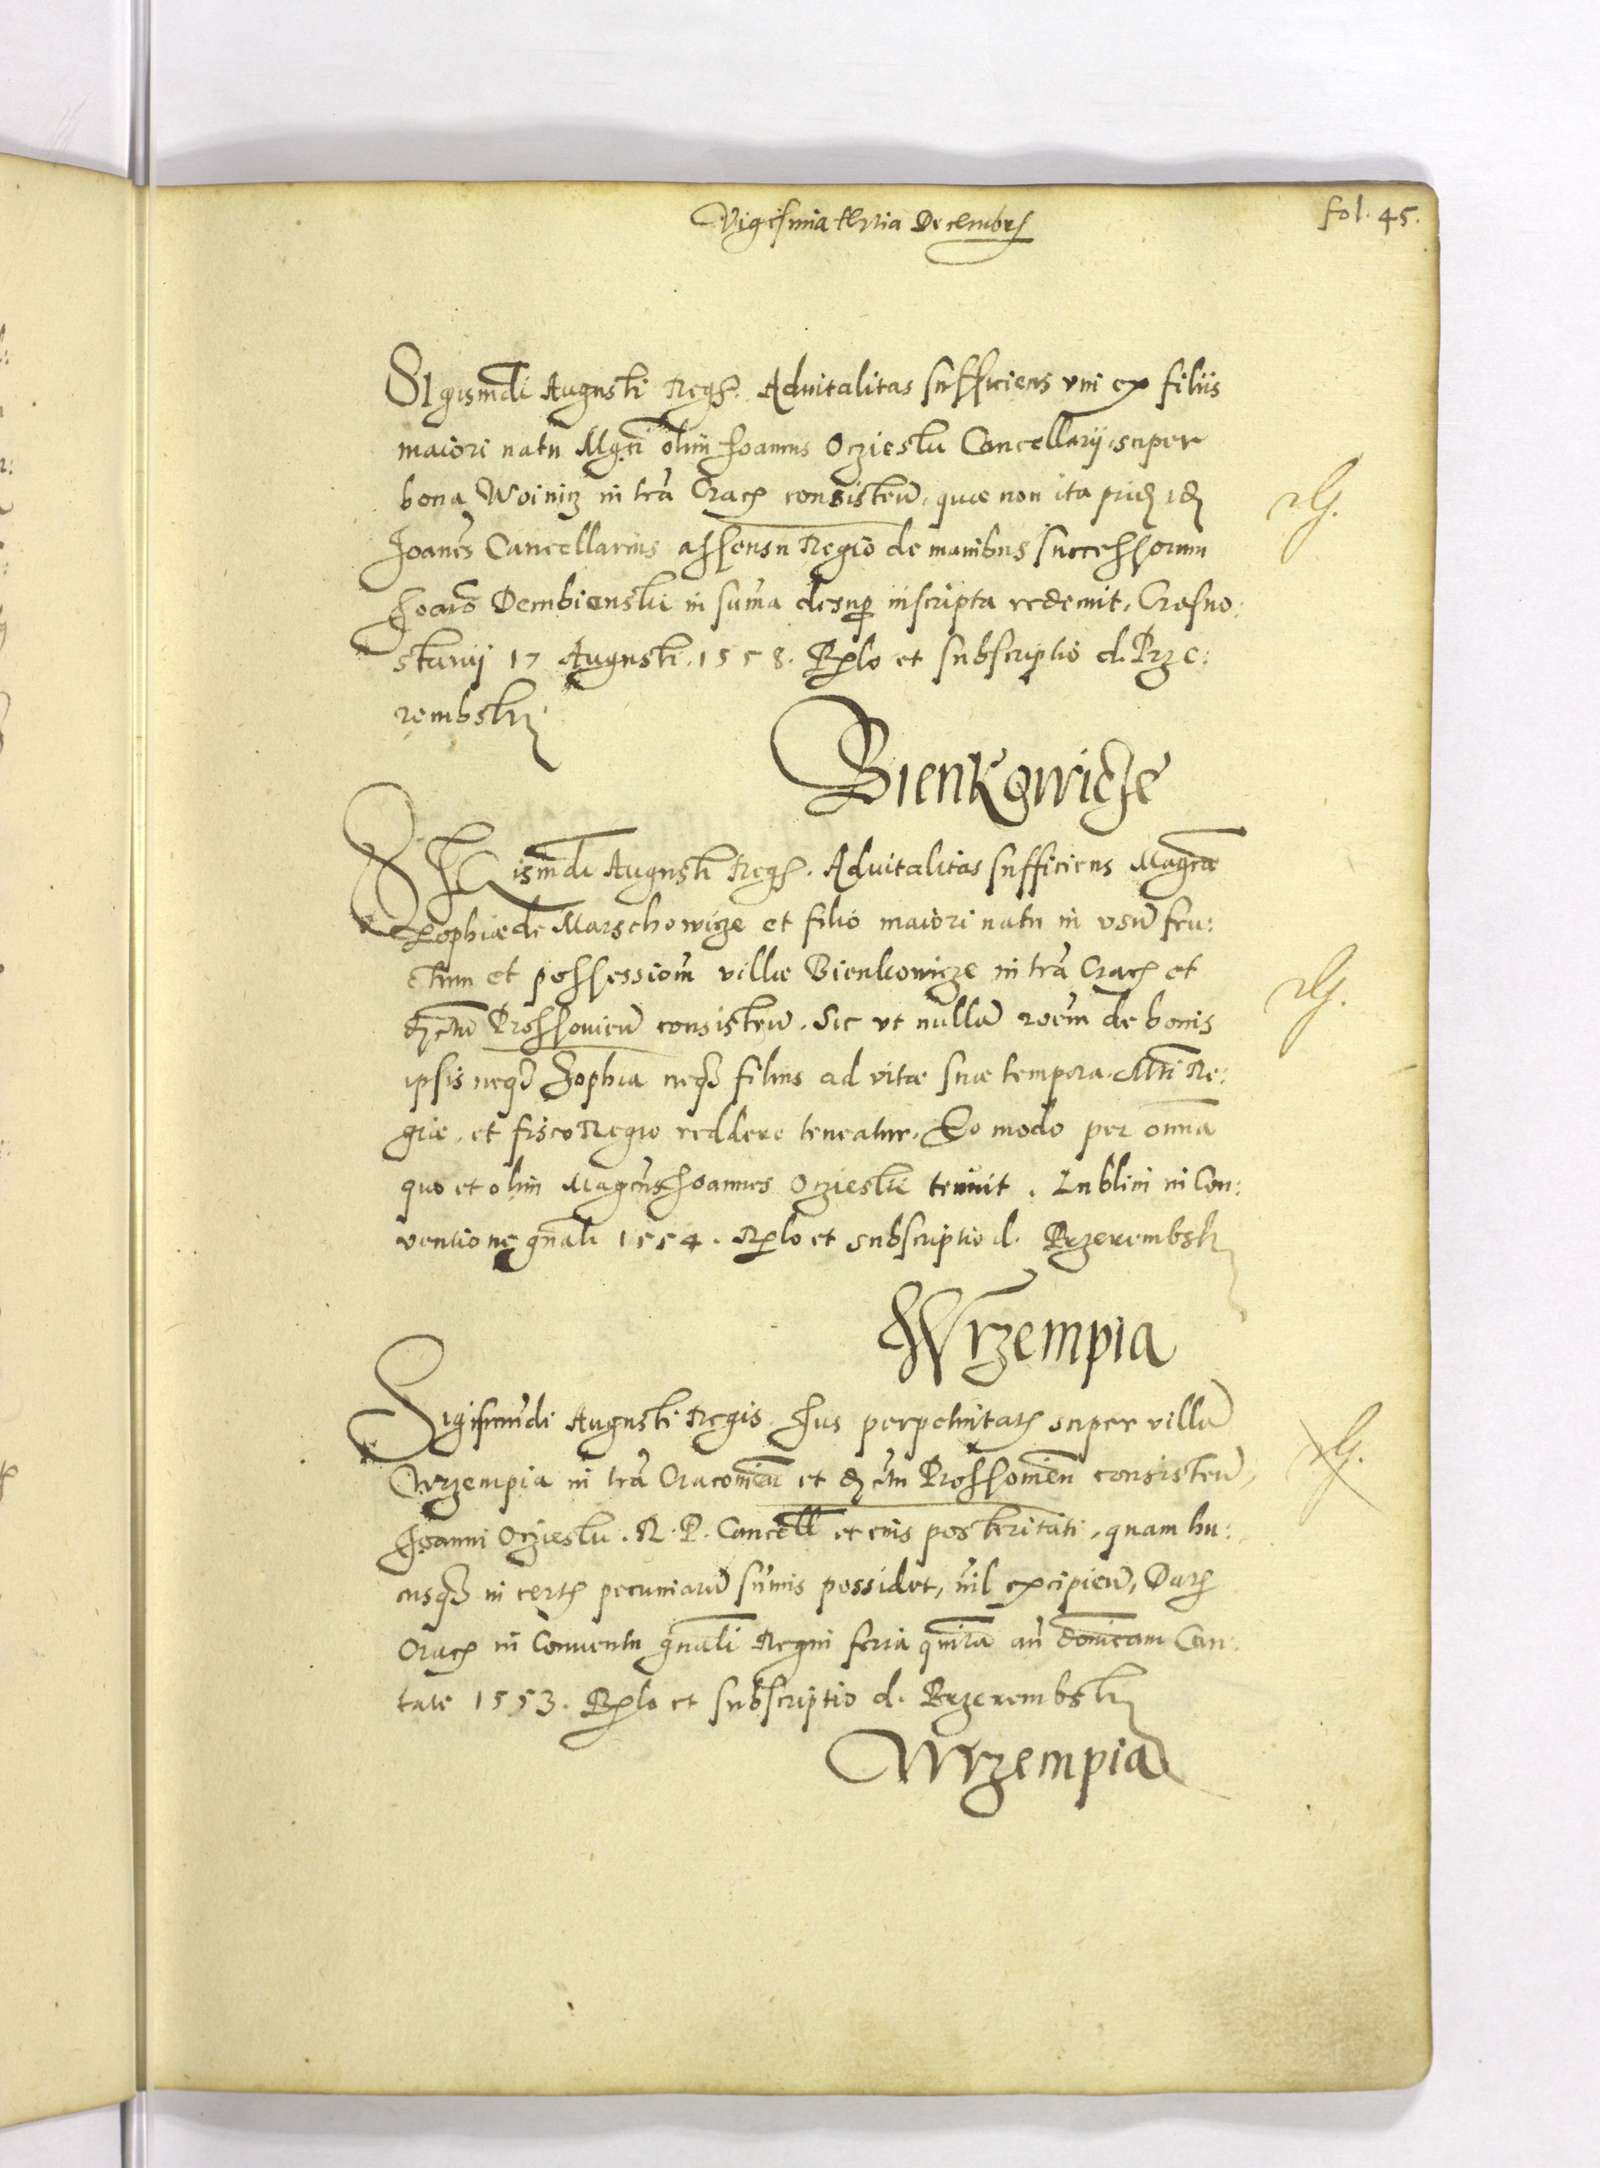 Vigesima tertia Decembris
fol. 45.
Sigismdi Augusti Regs. Advitalitas sufficiens vni ex filiis
maiori natu Mgci olim Joannis Oczieski Cancellarij super
bona Woinicz in tra Crac consisten, quæ non ita prid id
Joanes Cancellarius assensu Regio de manibus successorum
Joanis Dembienski in suma desup inscripta redemit, Crasno:
stavij 17 Augusti. 1558. Rlo et subscriptio d. Prze:
rembski
rG.
Bienkowicze
Sigismdi Augusti Regs. Advitalitas sufficiens Magca
Zophiæ de Marschowicze et filio maiori natu in vsu fru:
ctum et possessiom villæ Bienkowicze in tra Crac et
Prossovien consisten. Sic vt nulla roem de bonis
ipsis neq Zophia neq filius ad vitæ suæ tempora Mti Re:
giæ, et fisco Regio reddere teneatur. Eo modo per omnia
quo et olim Magcus Joannes Oczieski tenuit. Lublini in Con:
ventione gnali 1554. Rlo et subscriptio d. Przerembski
rG.
Wrzempia
Sigismundi Augusti Regis Jus perpetuitatis super villa
Wrzempia in tra Cracovien et Prossovien consisten,
Joanni Oczieski. R. P. Cancell et eius posteritati, quam hu:
cusq in certis pecuniaru sumis possidet, nil excipien, Datis
Crac in Conventu gnali Regni feria quinta an dominicam Can:
tate 1553. Rlo et subscriptio d. Przerembski
rG.
Wrzempia